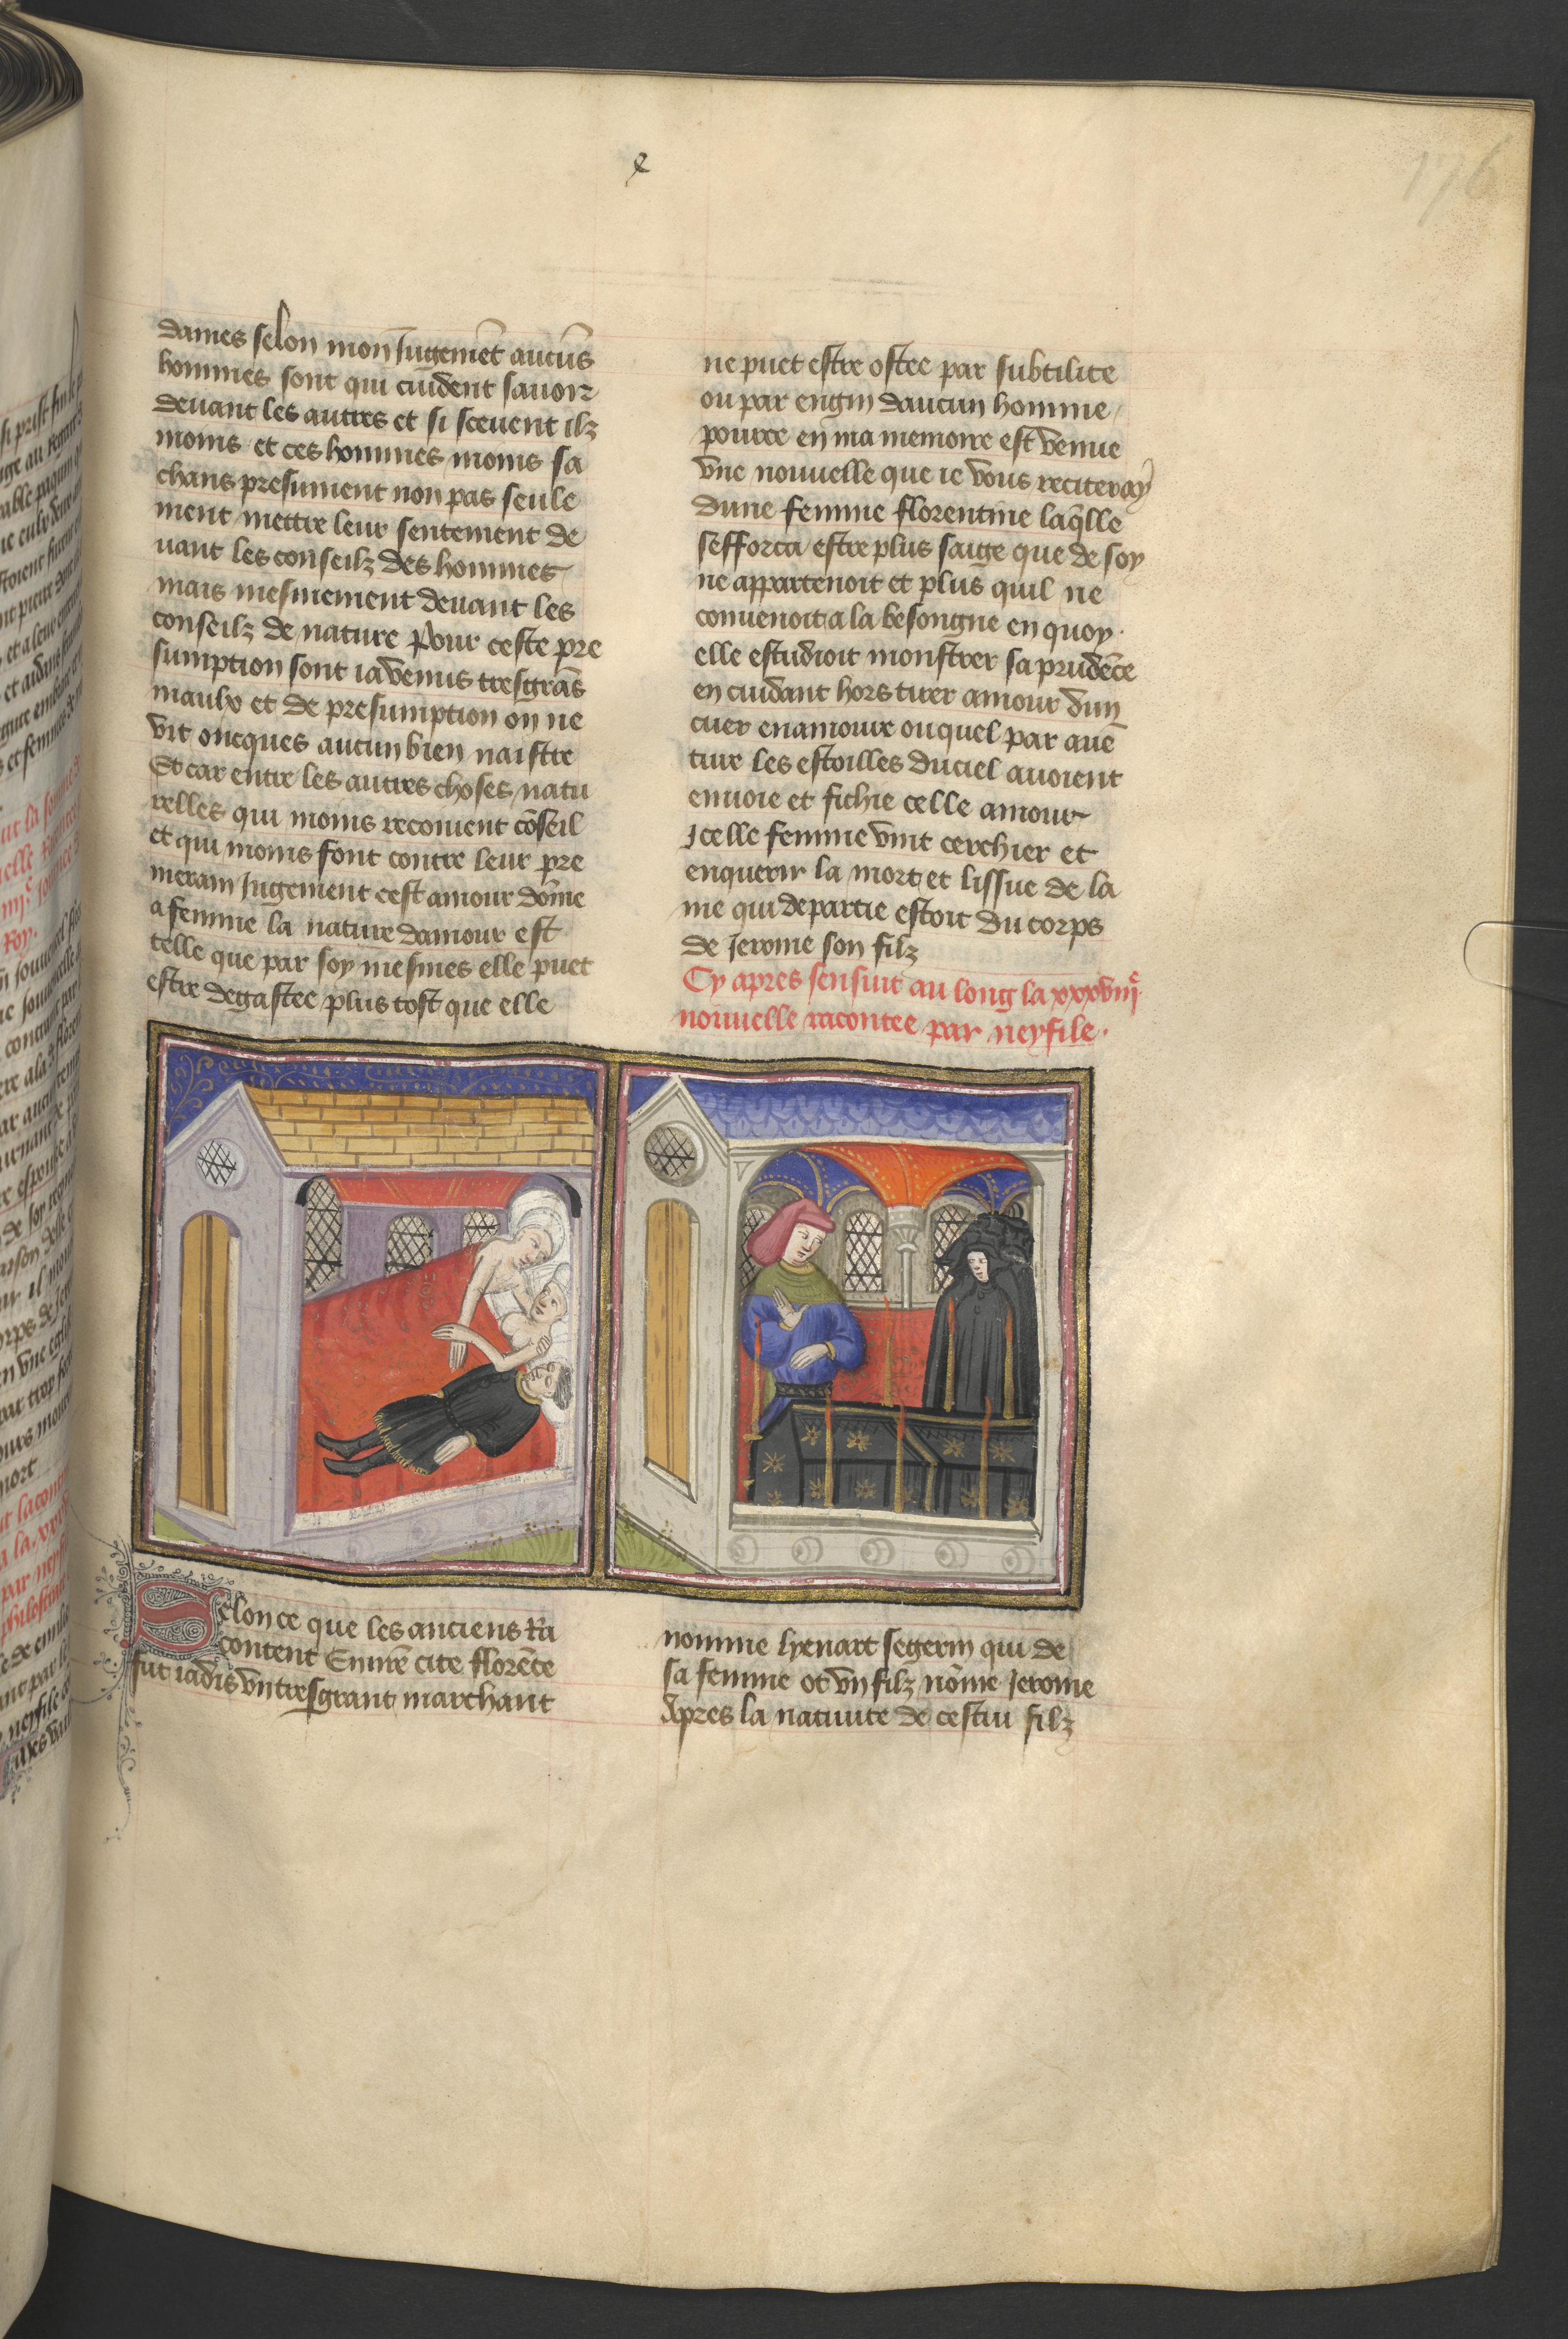 176
dames selon mon Jugemēt aucūs
hommes sont qui cuident sauoir
deuant les autres et si sceuent ilz
moins et ces hommes moins sa
chans presument non pas seule
ment mettre leur sentement de
uant les conseilz des hommes
mais mesmement deuant les
conseilz de nature Pour ceste pre
sumption sont ia venus tresgrās
maulx et de presumption on ne
vit oncques aucun bien naistre
Et car entre les autres choses natu
relles qui moins recoiuent cōseil
et qui moins font contre leur pre
merain Jugement cest amour dōme
a femme la nature damour est
telle que par soy mesmes elle puet
estre degastee plus tost que elle
ne puet estre ostee par subtilite
ou par engin daucun homme
pource en ma memoire est venue
vne nouuelle que ie vous reciteray
dune femme florentine laq̄lle
sefforca estre plus saige que de soy
ne appartenoit et plus quil ne
conuenoit a la besongne en quoy
elle estudioit monstrer sa prudēce
en cuidant hors tirer amour dun
cuer enamoure ouquel par auē
ture les estoilles du ciel auoient
enuoie et fichie celle amour
Jcelle femme vint cerchier et
enquerir la mort et lissue de la
me qui departie estoit du corps
de Jerome son filz
Cy apres sensuit au long la xxxviijᵉ
nouuelle racontee par neyfile.
Selon ce que les anciens Ra
content En nr̄e cite florēce
fut iadis vn tresgrant marchant
nomme lyenart segerin qui de
sa femme ot vn filz nōme Jerome
Apres la natiuite de cestui filz